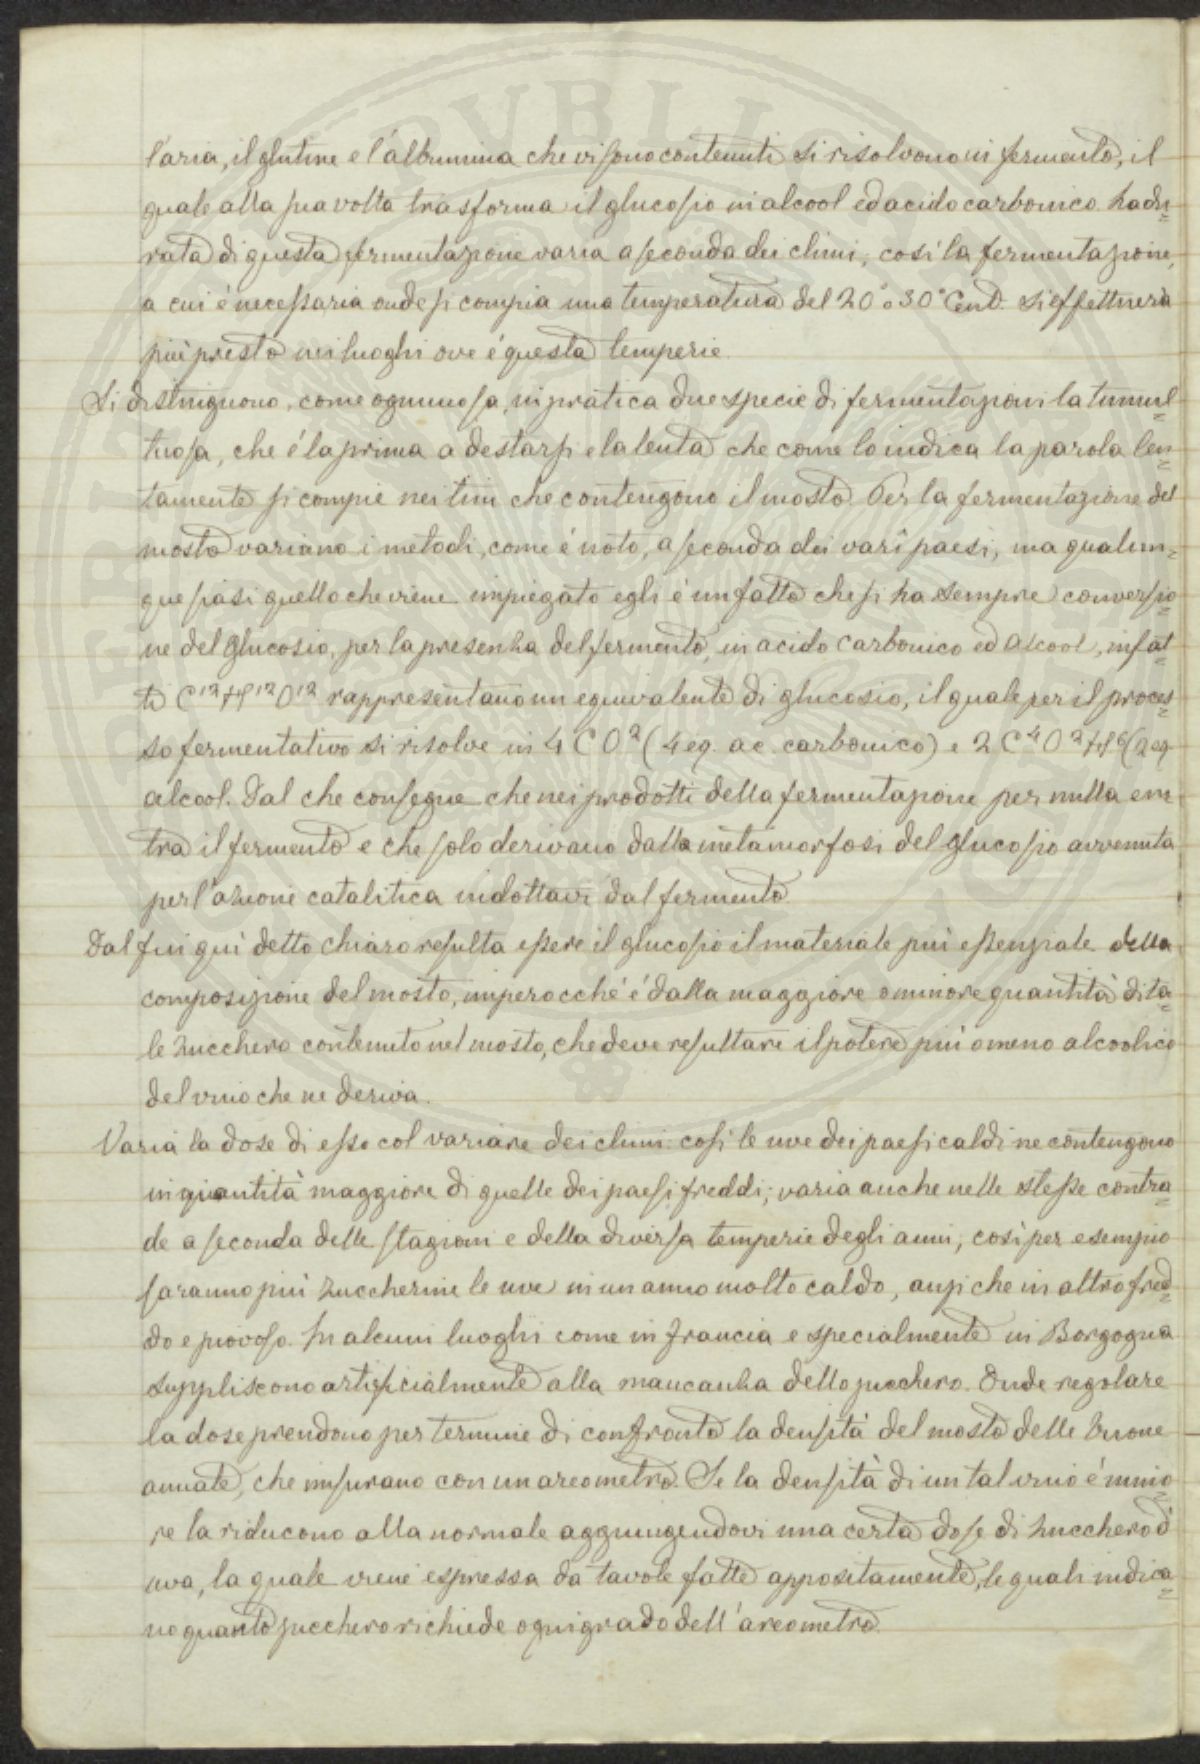 l'aria, il glutine e l'albumina che vi sono contenuti si risolvono in fermento, il
quale alla sua volta trasforma il glucosio in alcool ed acido carbonico. La du=
rata di questa fermentazione varia a seconda dei climi; così la fermentazione,
a cui è necessaria onde si compia una temperatura del 20° o 30° Cent. si effettuerà
più presto nei luoghi ove è questa temperie.
Si distinguono, come ognuno sa, in pratica due specie di fermentazioni la tumul=
tuosa, che è la prima a destarsi e la lenta che come lo indica la parola len=
tamente si compie nei tini che contengono il mosto. Per la fermentazione del
mosto variano i metodi, come è noto, a seconda dei varî paesi, ma qualun=
que siasi quello che viene impiegato egli è un fatto che si ha sempre conversio=
ne del glucosio, per la presenza del fermento, in acido carbonico ed alcool, infat=
ti C¹²H¹²O¹² rappresentano un equivalente di glucosio, il quale per il proces=
so fermentativo si risolve in 4 C O² (4 eq. ac. carbonico) e 2 C⁴O²H⁶ (2 eq.
alcool. Dal che consegue che nei prodotti della fermentazione per nulla en=
tra il fermento e che solo derivano dalla metamorfosi del glucosio avvenuta
per l'azione catalitica indottavi dal fermento.
Dal fin quì detto chiaro resulta essere il glucosio il materiale più essenziale della
composizione del mosto, imperocché è dalla maggiore o minore quantità di ta=
le zucchero contenuto nel mosto, che deve resultare il potere più o meno alcoolico
del vino che ne deriva.
Varia la dose di esso col variare dei climi: così le uve dei paesi caldi ne contengono
in quantità maggiore di quelle dei paesi freddi; varia anche nelle stesse contra=
de a seconda delle stagioni e della diversa temperie degli anni, così per esempio
saranno più zuccherine le uve in un anno molto caldo, anzi che in altro fred=
do e piovoso. In alcuni luoghi come in Francia e specialmente in Borgogna
suppliscono artificialmente alla mancanza dello zucchero. Onde regolare
la dose prendono per termine di confronto la densità del mosto delle buone
annate, che misurano con un areometro. Se la densità di un tal vino è mino=
re la riducono alla normale aggiungendovi una certa dose di zucchero d'
uva, la quale viene espressa da tavole fatte appositamente, le quali indica=
no quanto zucchero richiede ogni grado dell'areometro.